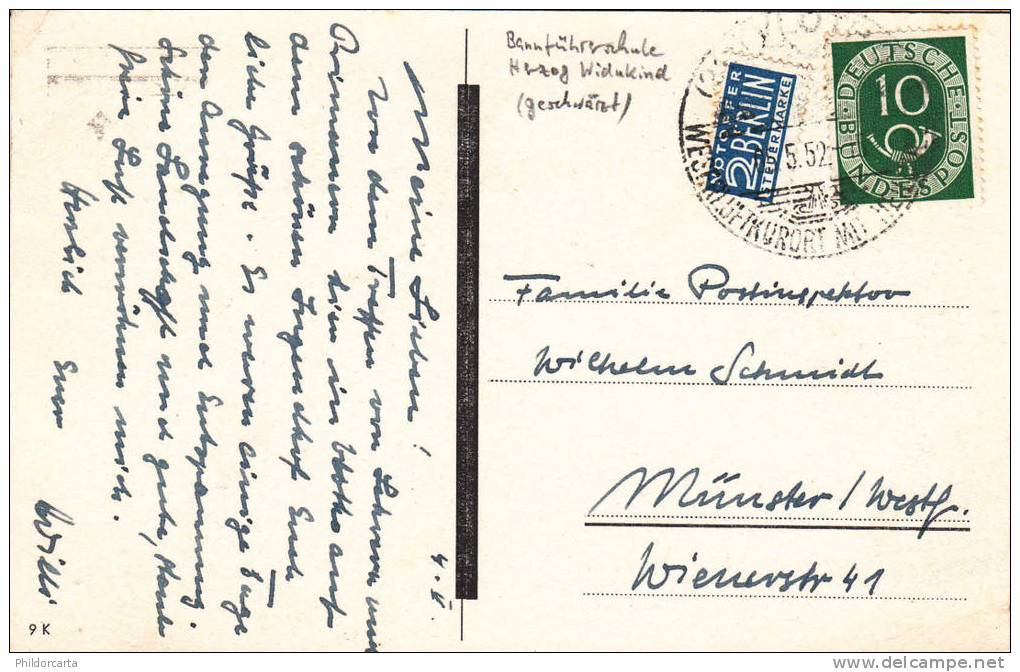 Meine Lieben!
Von dem Treffen von Lehrern und
hier in Vlotho auf
dem schönen Jugendhof Euch
liebe Grüße. Es waren einige Tage
der Anregung und Entspannung.
Schöne Landschaft und gute,
Luft verwöhnen mich.
Herzlich Euer
Willi
4.V.
9 K
Bannführerschule
Herzog Widukind
(geschwärzt)
NOTOPFER
2 BERLIN
STEUERMARKE
DEUTSCHE
BUNDESPOST
10
5.52
LUFTKURORT MIT
Familie Postinspektor
Wilhelm Schmidt
Münster/Westf.
Wienerstr 41
Phildorcarta
delcampe.net